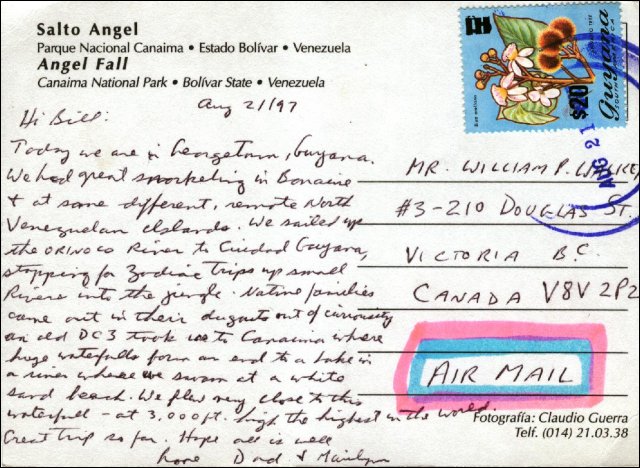 Salto Angel
Parque Nacional Canaima • Estado Bolívar • Venezuela
Angel Fall
Canaima National Park • Bolívar State • Venezuela
Aug 21/97
Hi Bill:
Today we are in Georgetown, Guyana.
We had great snorkeling in Bonaire
+ at some different, remote North
Venezuelan Islands. We sailed up
the ORINOCO River to Ciudad Guyana,
stopping for Zodiac trips up small
Rivers into the jungle. Native families
came out in their dugouts out of curiosity
an old DC3 took us to Canaima where
huge waterfalls form an end to a lake in
a river where we swam at a white
sand beach. We flew very close to this
waterfall - at 3,000 ft. high the highest in the world.
Great trip so far. Hope all is well
Love Dad & Marilyn
$20
Guyana
AUG 21
MR. WILLIAM P.
#3-210 DOUGLAS ST.
VICTORIA B.C.
CANADA V8V 2P2
AIR MAIL
Fotografía: Claudio Guerra
Telf. (014) 21.03.38